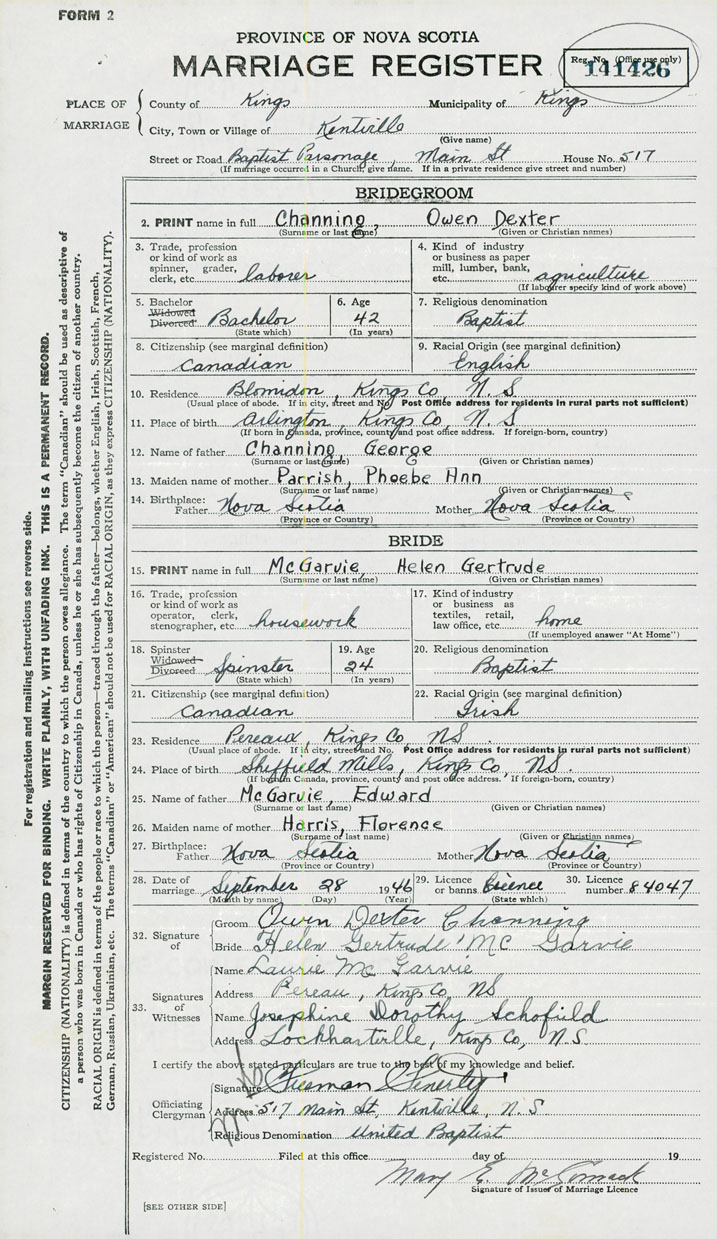 FORM 2
PROVINCE OF NOVA SCOTIA
MARRIAGE REGISTER
Reg. No. (Office use only)
141426
PLACE OF MARRIAGE
County of Kings Municipality of Kings
City, Town or Village of Kentville
(Give name)
Street or Road Baptist Parsonage, Main St House No. 517
(If marriage occurred in a Church, give name. If in a private residence give street and number)
BRIDEGROOM
2. PRINT name in full Channing, Owen Dexter
(Surname or last name) (Given or Christian names)
3. Trade, profession or kind of work as spinner, grader, clerk, etc. laborer
4. Kind of industry or business as paper mill, lumber, bank, etc. agriculture
(If labourer specify kind of work above)
5. Bachelor Widowed Divorced Bachelor
(State which)
6. Age 42
(In years)
7. Religious denomination
Baptist
8. Citizenship (see marginal definition)
Canadian
9. Racial Origin (see marginal definition)
English
10. Residence Blomidon, Kings Co N.S
(Usual place of abode. If in city, street and No. Post Office address for residents in rural parts not sufficient)
11. Place of birth Arlington, Kings Co, N.S
(If born in Canada, province, county and post office address. If foreign-born, country)
12. Name of father Channing, George
(Surname or last name) (Given or Christian names)
13. Maiden name of mother Parrish, Phoebe Ann
(Surname or last name) (Given or Christian names)
14. Birthplace: Father Nova Scotia Mother Nova Scotia
(Province or Country) (Province or Country)
BRIDE
15. PRINT name in full McGarvie, Helen Gertrude
(Surname or last name) (Given or Christian names)
16. Trade, profession or kind of work as operator, clerk, stenographer, etc. housework
17. Kind of industry or business as textiles, retail, law office, etc. home
(If unemployed answer "At Home")
18. Spinster Widowed Divorced Spinster
(State which)
19. Age 24
(In years)
20. Religious denomination
Baptist
21. Citizenship (see marginal definition)
Canadian
22. Racial Origin (see marginal definition)
Irish
23. Residence Pereaux, Kings Co NS
(Usual place of abode. If in city, street and No. Post Office address for residents in rural parts not sufficient)
24. Place of birth Sheffield Mills, Kings Co NS.
(If born in Canada, province, county and post office address. If foreign-born, country)
25. Name of father McGarvie, Edward
(Surname or last name) (Given or Christian names)
26. Maiden name of mother Harris, Florence
(Surname or last name) (Given or Christian names)
27. Birthplace: Father Nova Scotia Mother Nova Scotia
(Province or Country) (Province or Country)
28. Date of marriage September 28 1946
(Month by name) (Day) (Year)
29. Licence or banns
(State which)
30. Licence number 84047
32. Signature of
Groom Owen Dexter Channing
Bride Helen Gertrude Mc Garvie
33. Signatures of Witnesses
Name Laurie Mc Garvie
Address Pereau, Kings Co NS
Name Josephine Dorothy Schofield
Address Lockhartville, Kings Co, N.S.
I certify the above stated particulars are true to the best of my knowledge and belief.
Officiating Clergyman
Signature Freeman Fenerty
Address 517 Main St, Kentville, N.S
Religious Denomination United Baptist
Registered No. Filed at this office day of 19
Mary E. McCormack
Signature of Issuer of Marriage Licence
[SEE OTHER SIDE]
For registration and mailing instructions see reverse side.
MARGIN RESERVED FOR BINDING. WRITE PLAINLY, WITH UNFADING INK. THIS IS A PERMANENT RECORD.
CITIZENSHIP (NATIONALITY) is defined in terms of the country to which the person owes allegiance. The term "Canadian" should be used as descriptive of
a person who was born in Canada or who has rights of Citizenship in Canada, unless he or she has subsequently become the citizen of another country.
RACIAL ORIGIN is defined in terms of the people or race to which the person—traced through the father—belongs, whether English, Irish, Scottish, French,
German, Russian, Ukrainian, etc. The terms "Canadian" or "American" should not be used for RACIAL ORIGIN, as they express CITIZENSHIP (NATIONALITY).